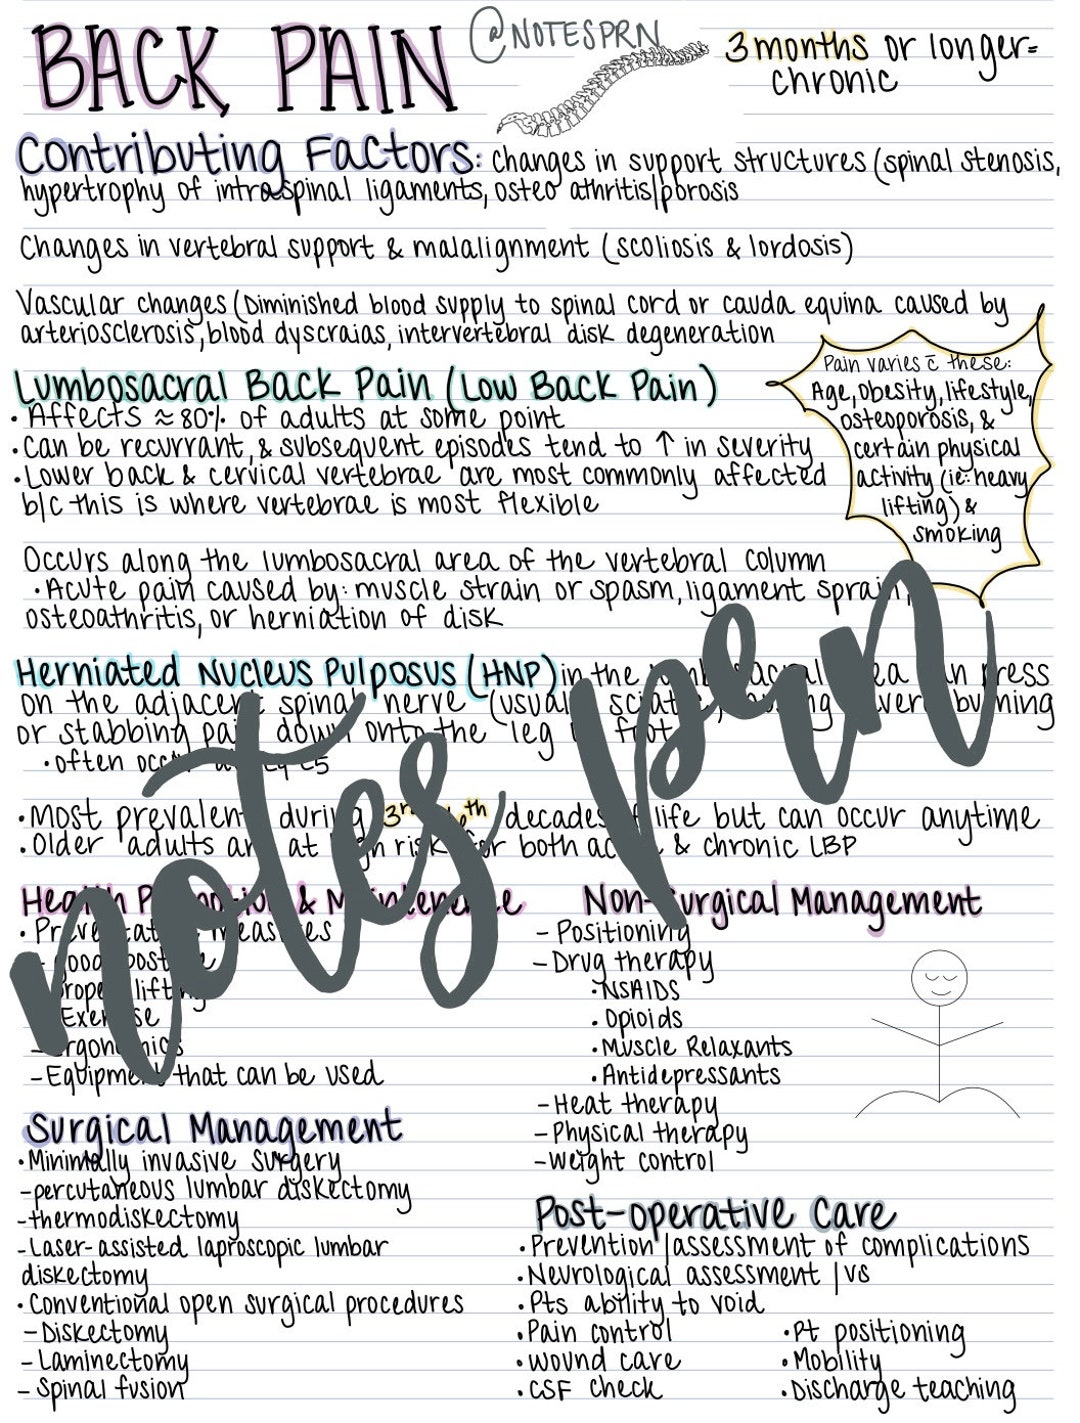 BACK PAIN
@NOTESPRN
3 months or longer=
chronic
Contributing Factors: changes in support structures (spinal stenosis,
hypertrophy of intraspinal ligaments, osteo athritis/porosis
Changes in vertebral support & malalignment (scoliosis & lordosis)
Vascular changes (Diminished blood supply to spinal cord or cauda equina caused by
arteriosclerosis, blood dyscraias, intervertebral disk degeneration
Pain varies c̄ these:
Age, obesity, lifestyle,
osteoporosis, &
certain physical
activity (ie: heavy
lifting) &
smoking
Lumbosacral Back Pain (Low Back Pain)
• Affects ≈ 80% of adults at some point
• can be recurrant, & subsequent episodes tend to ↑ in severity
• Lower back & cervical vertebrae are most commonly affected
b/c this is where vertebrae is most flexible
Occurs along the lumbosacral area of the vertebral column
• Acute pain caused by: muscle strain or spasm, ligament sprain,
osteoathritis, or herniation of disk
Herniated Nucleus Pulposus (HNP) in the press
on the adjacent spinal nerve burning
or stabbing pain down onto the leg
• often
• Most prevalent during decades of life but can occur anytime
• Older adults are at high risk for both & chronic LBP
notes prn
Health Promotion & Maintenence
• Preventative measures
- good posture
proper lifting
Exercise
- Ergonomics
- Equipment that can be used
Non-Surgical Management
- Positioning
- Drug therapy
• NSAIDS
• Opioids
• Muscle Relaxants
• Antidepressants
- Heat therapy
- Physical therapy
- Weight control
Surgical Management
• Minimally invasive surgery
- percutaneous lumbar diskectomy
- thermodiskectomy
- Laser-assisted laproscopic lumbar
diskectomy
• Conventional open surgical procedures
- Diskectomy
- Laminectomy
- Spinal fusion
Post-operative Care
• Prevention/assessment of complications
• Neurological assessment /vs
• Pts ability to void
• Pain control
• wound care
• CSF check
• Pt positioning
• Mobility
• Discharge teaching